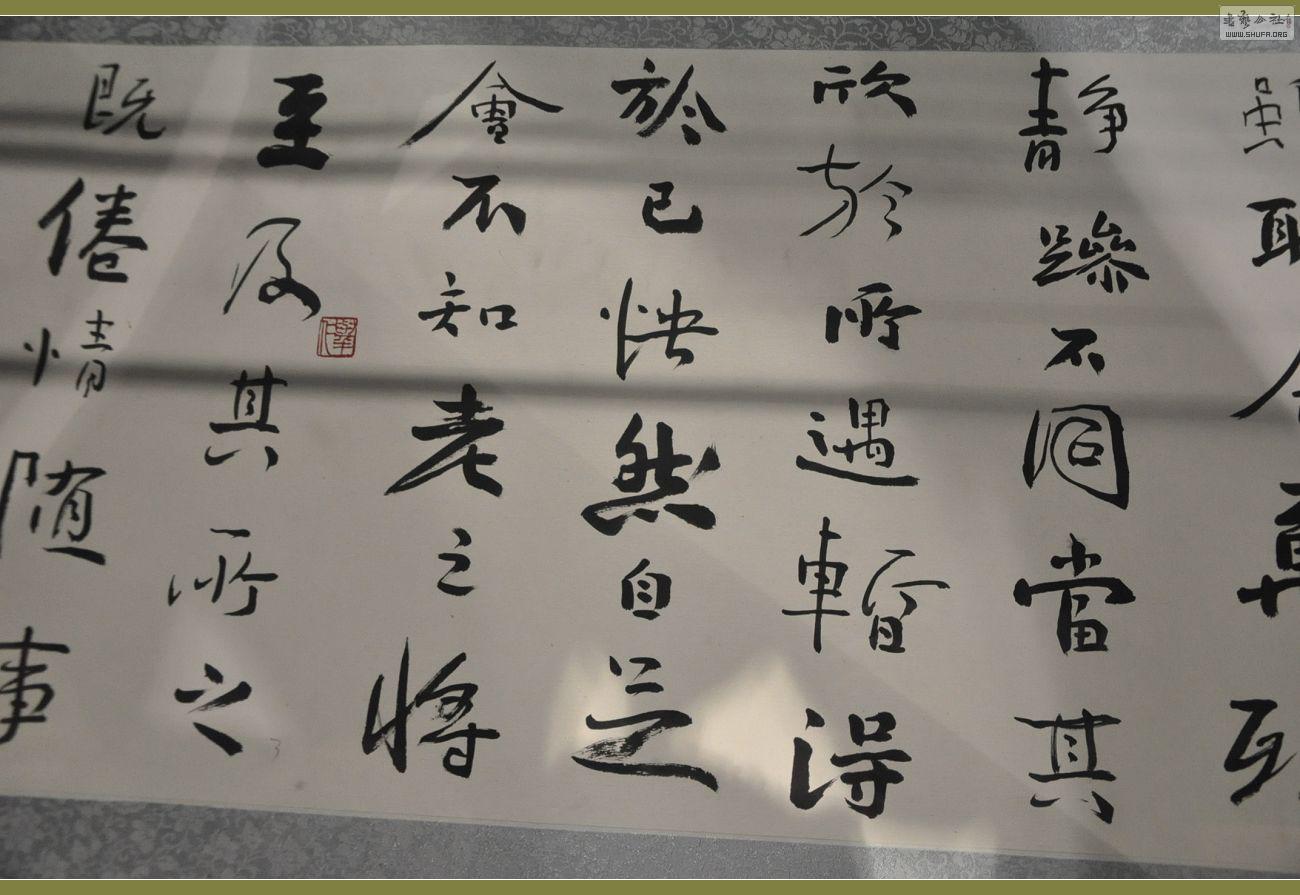 雖取舍萬殊
靜躁不同當其
欣於所遇暫得
於己快然自足
會不知老之將
至及其所之
既倦情隨事
書藝公社
WWW.SHUFA.ORG